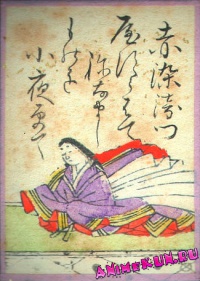 赤染衛門
屋すらはて
祢なまし
ものを
小夜更て
ANIMEKUN.RU